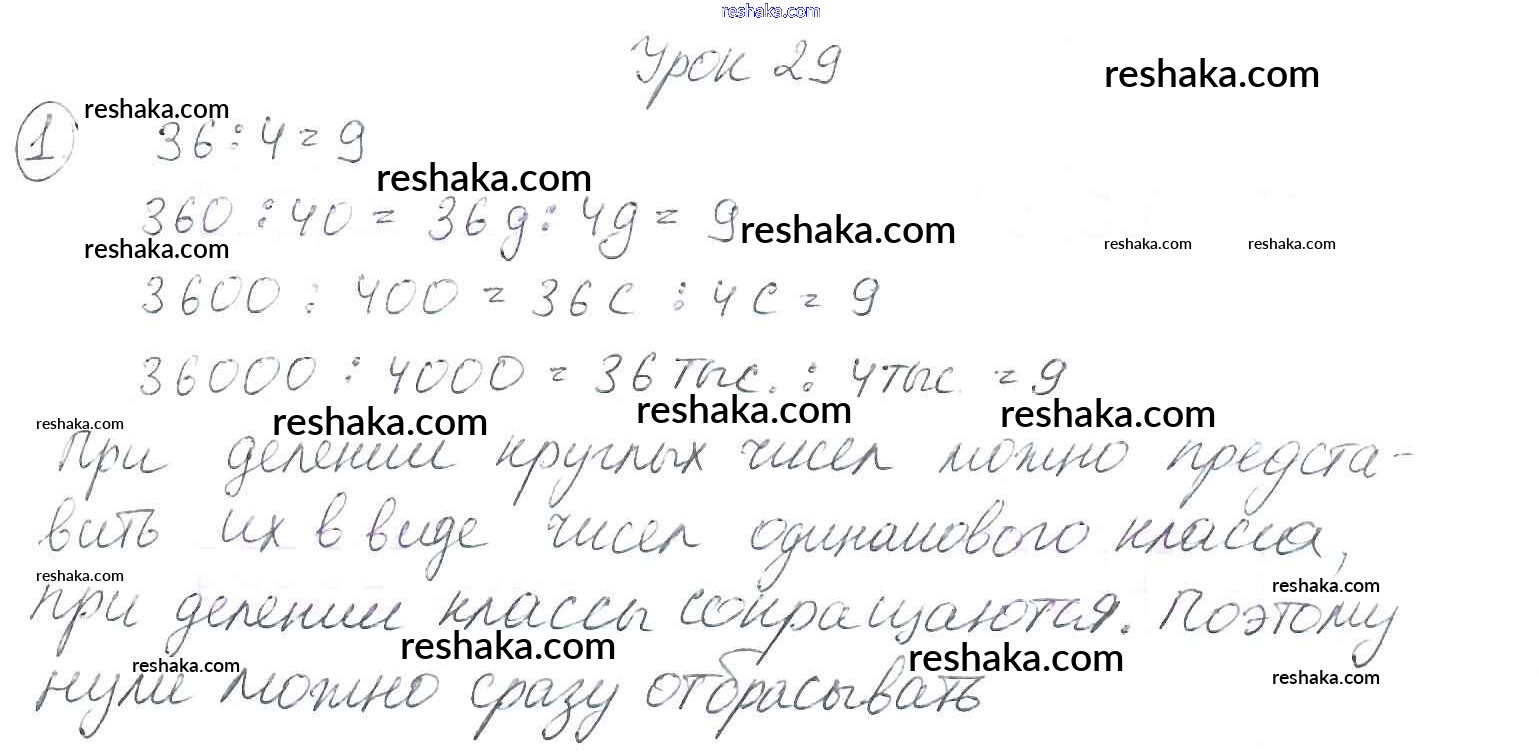 reshaka.com
Урок 29
reshaka.com
reshaka.com
1 36 : 4 = 9
reshaka.com
360 : 40 = 36д : 4д = 9
reshaka.com
reshaka.com
reshaka.com
reshaka.com
3600 : 400 = 36с : 4с = 9
36000 : 4000 = 36тыс. : 4тыс = 9
reshaka.com
reshaka.com
reshaka.com
reshaka.com
При делении круглых чисел можно предста-
вить их в виде чисел одинакового класса,
reshaka.com
reshaka.com
при делении классы сокращаются. Поэтому
reshaka.com
reshaka.com
reshaka.com
reshaka.com
нули можно сразу отбрасывать